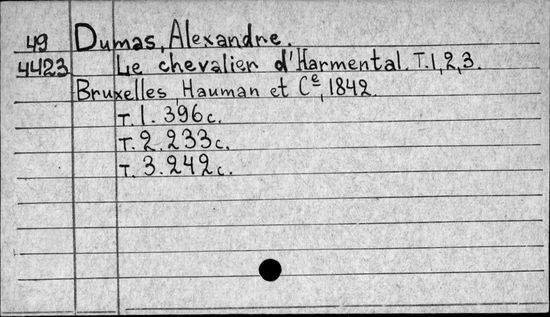 49 Dumas, Alexandre.
4423 Le chevalier d'Harmental. T.1,2,3.
Bruxelles, Hauman et Cᵉ, 1842.
T. 1. 396 c.
T. 2. 233 c.
T. 3. 242 c.